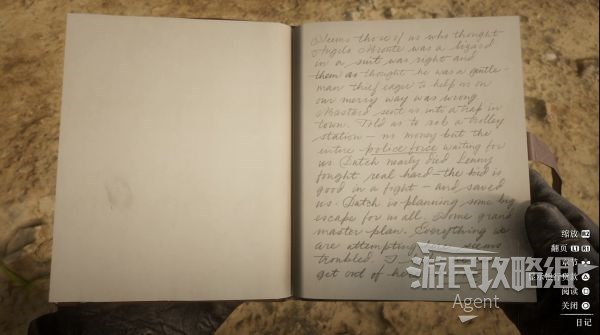 Seems those of us who thought
Angelo Bronte was a lizard
in a suit was right and
them as thought he was a gentle-
man thief eager to help us on
our merry way was wrong.
Bastard sent us into a trap in
town. Told us to rob a trolley
station – no money but the
entire police force waiting for
us. Dutch nearly died. Lenny
fought real hard – the kid is
good in a fight – and saved
us. Dutch is planning some big
escape for us all. Some grand
master plan. Everything we
are attempting seems
troubled. I
get out of
缩放 R2
翻页 L1 R1
章节
阅读
关闭
日记
游民攻略组
Agent